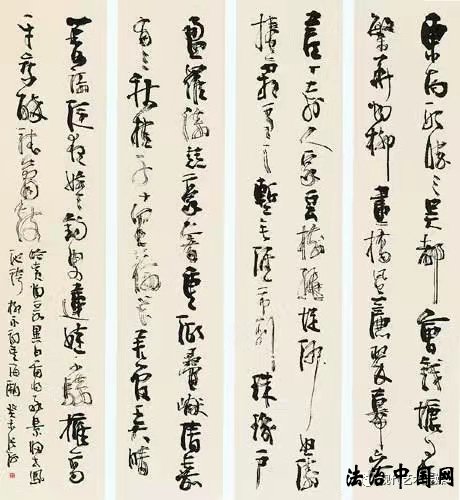 東南形勝三吳都會錢塘自古
繁華煙柳畫橋風簾翠幕參
差十萬人家雲樹繞堤沙怒濤
捲霜雪天塹無涯市列珠璣戶
盈羅綺競豪奢重湖疊巘清嘉
有三秋桂子十里荷花羌管弄晴
菱歌泛夜嬉嬉釣叟蓮娃千騎擁高
牙乘醉聽簫鼓
吟賞煙霞異日圖將好景歸去鳳
池誇 柳永詞望海潮
法治中国网